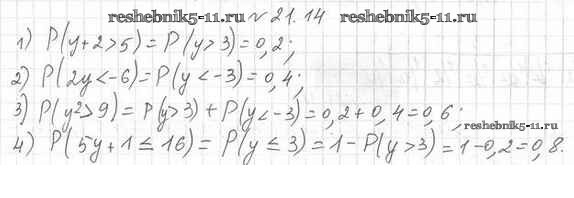 reshebnik5-11.ru № 21.14 reshebnik5-11.ru
1) P(y+2>5)=P(y>3)=0,2;
2) P(2y<-6)=P(y<-3)=0,4;
3) P(y²>9)=P(y>3)+P(y<-3)=0,2+0,4=0,6;
reshebnik5-11.ru
4) P(5y+1≤16)=P(y≤3)=1-P(y>3)=1-0,2=0,8.